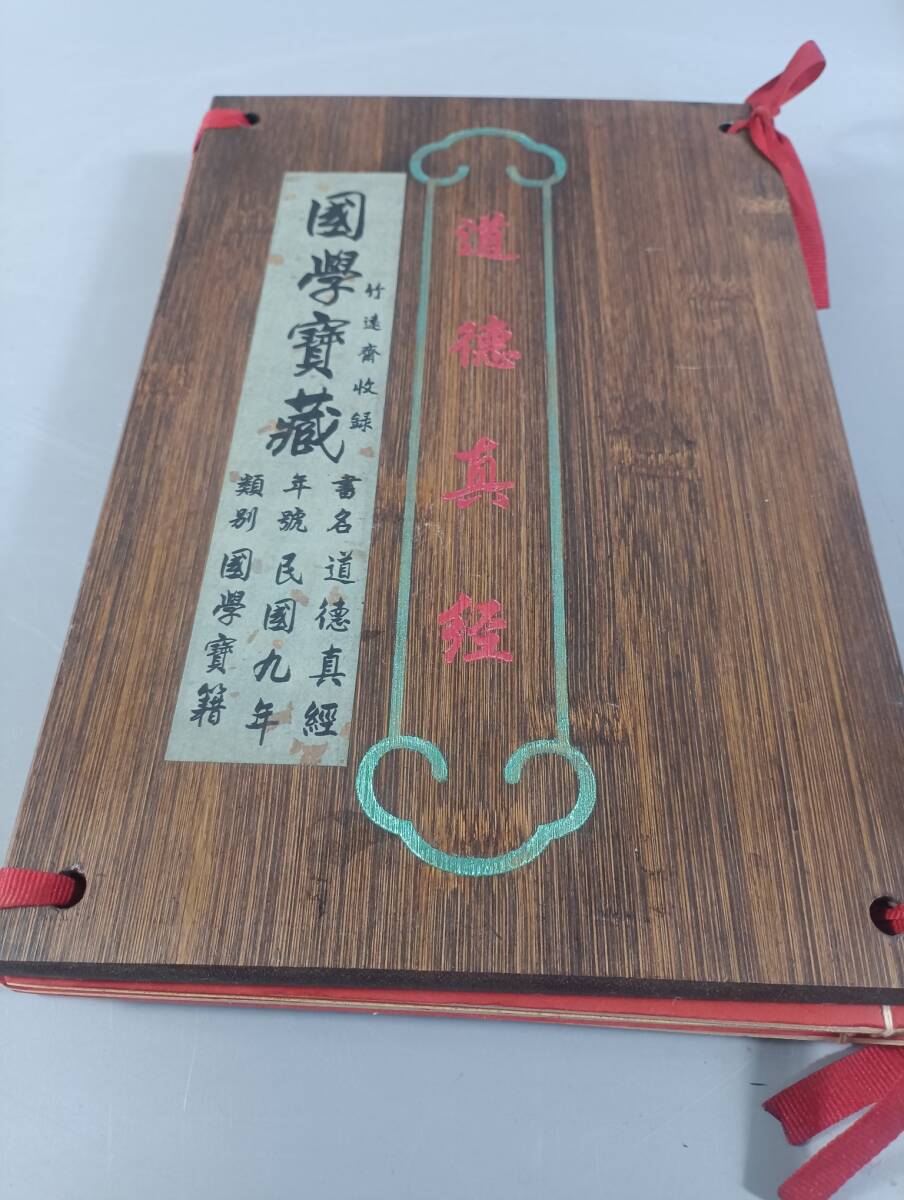 道德真经
竹遠齋收録
國學寶藏
書名 道德真經
年號 民國九年
類別 國學寶籍